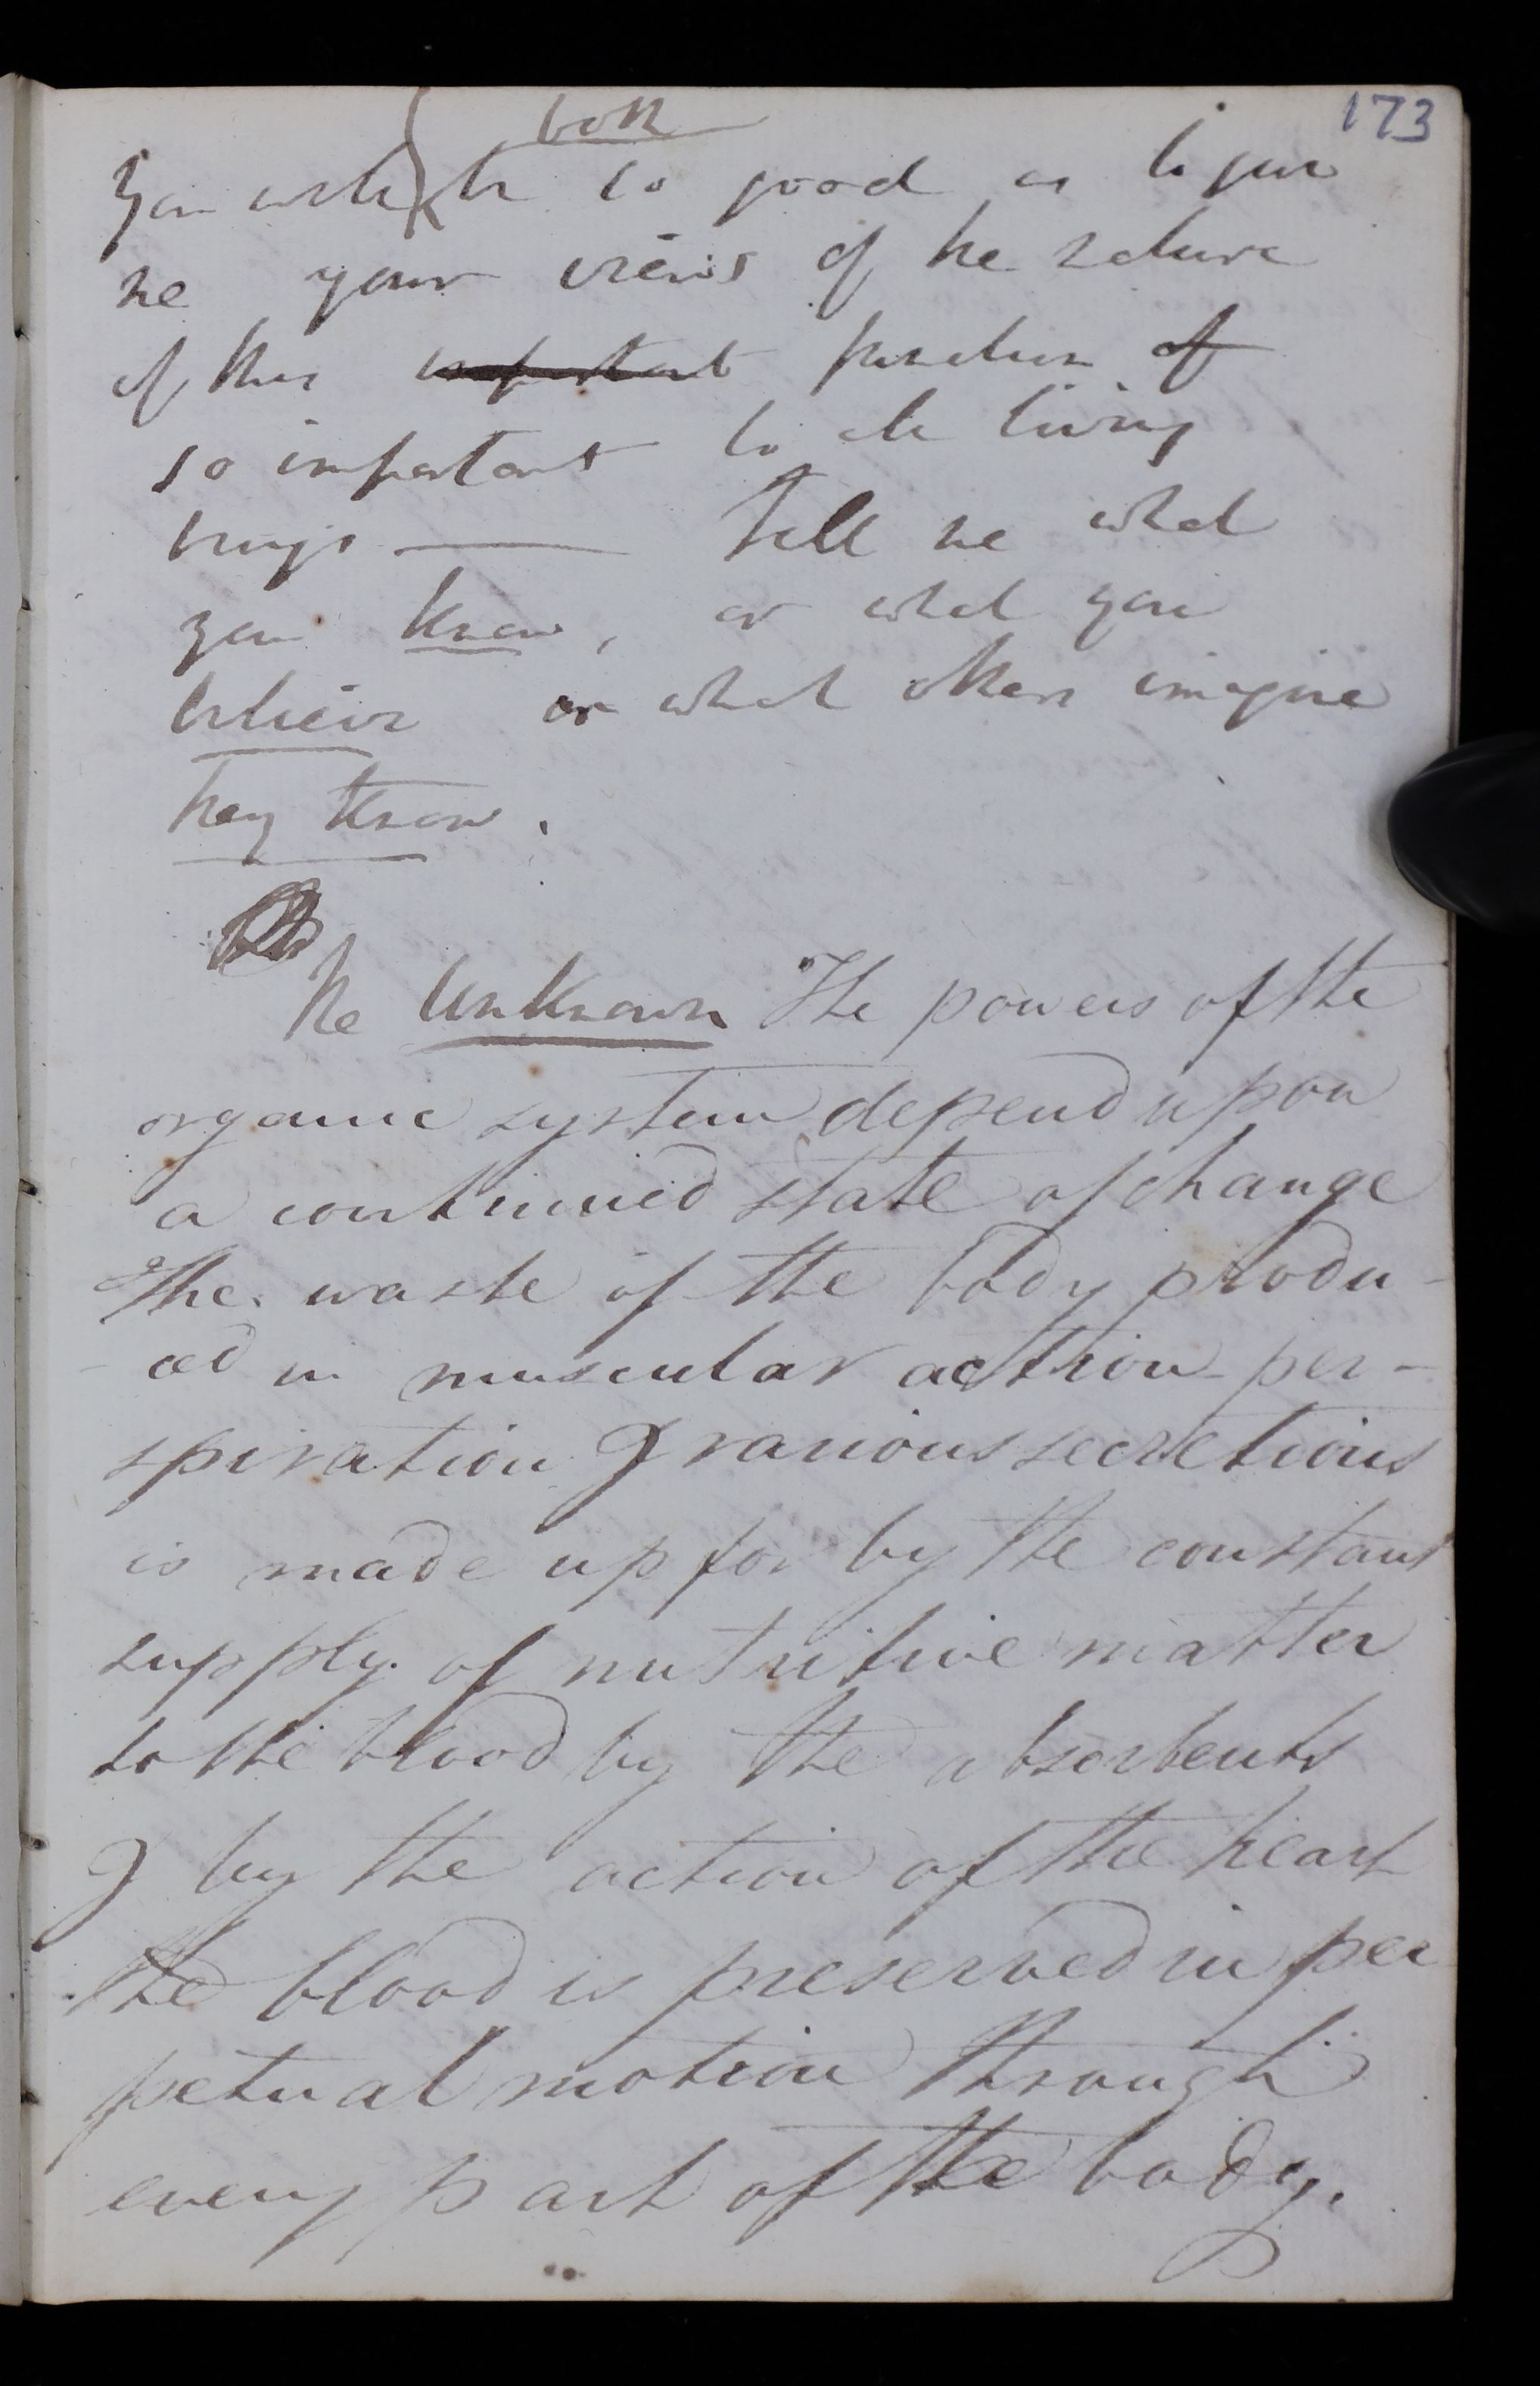 173
both
You will be so good as to give
me your views of the nature
of this <del>important</del> function <del>of</del>
so important to all living
beings — Tell me what
you know, or what you
believe or what others imagine
they know.
The Unknown The powers of the
organic system depend upon
a continued state of change
The waste of the body produ-
-ced in muscular action per-
spiration & various secretions
is made up for by the constant
supply of nutritive matter
to the blood by the absorbents
& by the action of the heart
the blood is preserved in per
petual motion through
every part of the body.